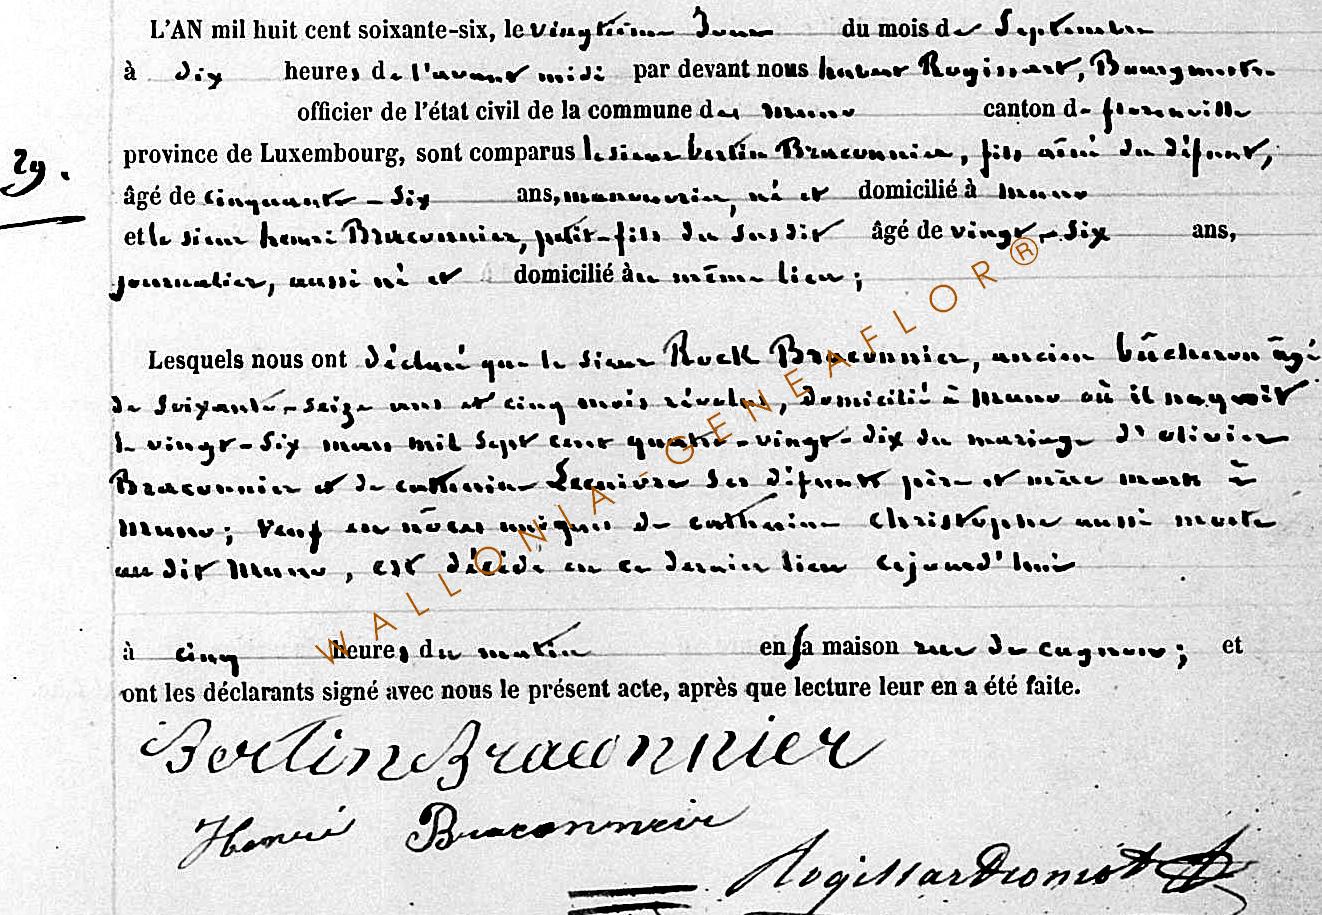 L'AN mil huit cent soixante-six, le vingtième Jour du mois de Septembre
à dix heures de l'avant midi par devant nous hubert Rogissart, Bourgmestre
officier de l'état civil de la commune de muno canton de florenville
province de Luxembourg, sont comparus le sieur bertin Braconnier, fils aîné du défunt,
29.
âgé de cinquante-six ans, manouvrier, né et domicilié à muno
et le sieur henri Braconnier, petit-fils du susdit âgé de vingt-six ans,
journalier, aussi né et domicilié au même lieu;
Lesquels nous ont déclaré que le sieur Rock Braconnier, ancien bûcheron âgé
de soixante-seize ans et cinq mois révolus, domicilié à muno où il naquit
le vingt-six mars mil sept cent quatre-vingt-dix du mariage d'olivier
Braconnier et de catherine ses défunts père et mère morts à
muno; veuf en nôces uniques de catherine christophe aussi morte
au dit muno, est décédé en ce dernier lieu cejourd'hui
à cinq heures du matin en sa maison rue de cugnon; et
ont les déclarants signé avec nous le présent acte, après que lecture leur en a été faite.
Bertin Braconnier
Henri Braconneir
Rogissart
WALLONIA - GENEAFLOR ®